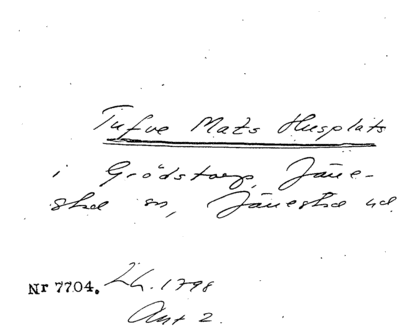 Tufve Mats Husplats
i Grödstorp, Jäne-
stad sn, Jänestad hd.
Nr 7704. Lh. 1798
Ant 2.